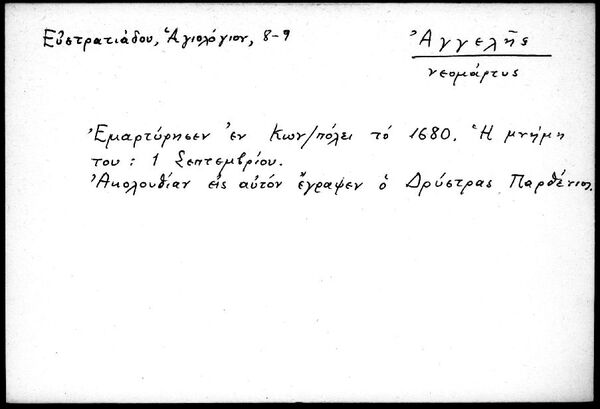 Εὐστρατιάδου, Ἁγιολόγιον, 8-9
Ἀγγελῆς
νεομάρτυς
Ἐμαρτύρησεν ἐν Κων/πόλει τό 1680. Ἡ μνήμη
του : 1 Σεπτεμβρίου.
Ἀκολουθίαν εἰς αὐτόν ἔγραψεν ὁ Δρύστρας Παρθένιος.